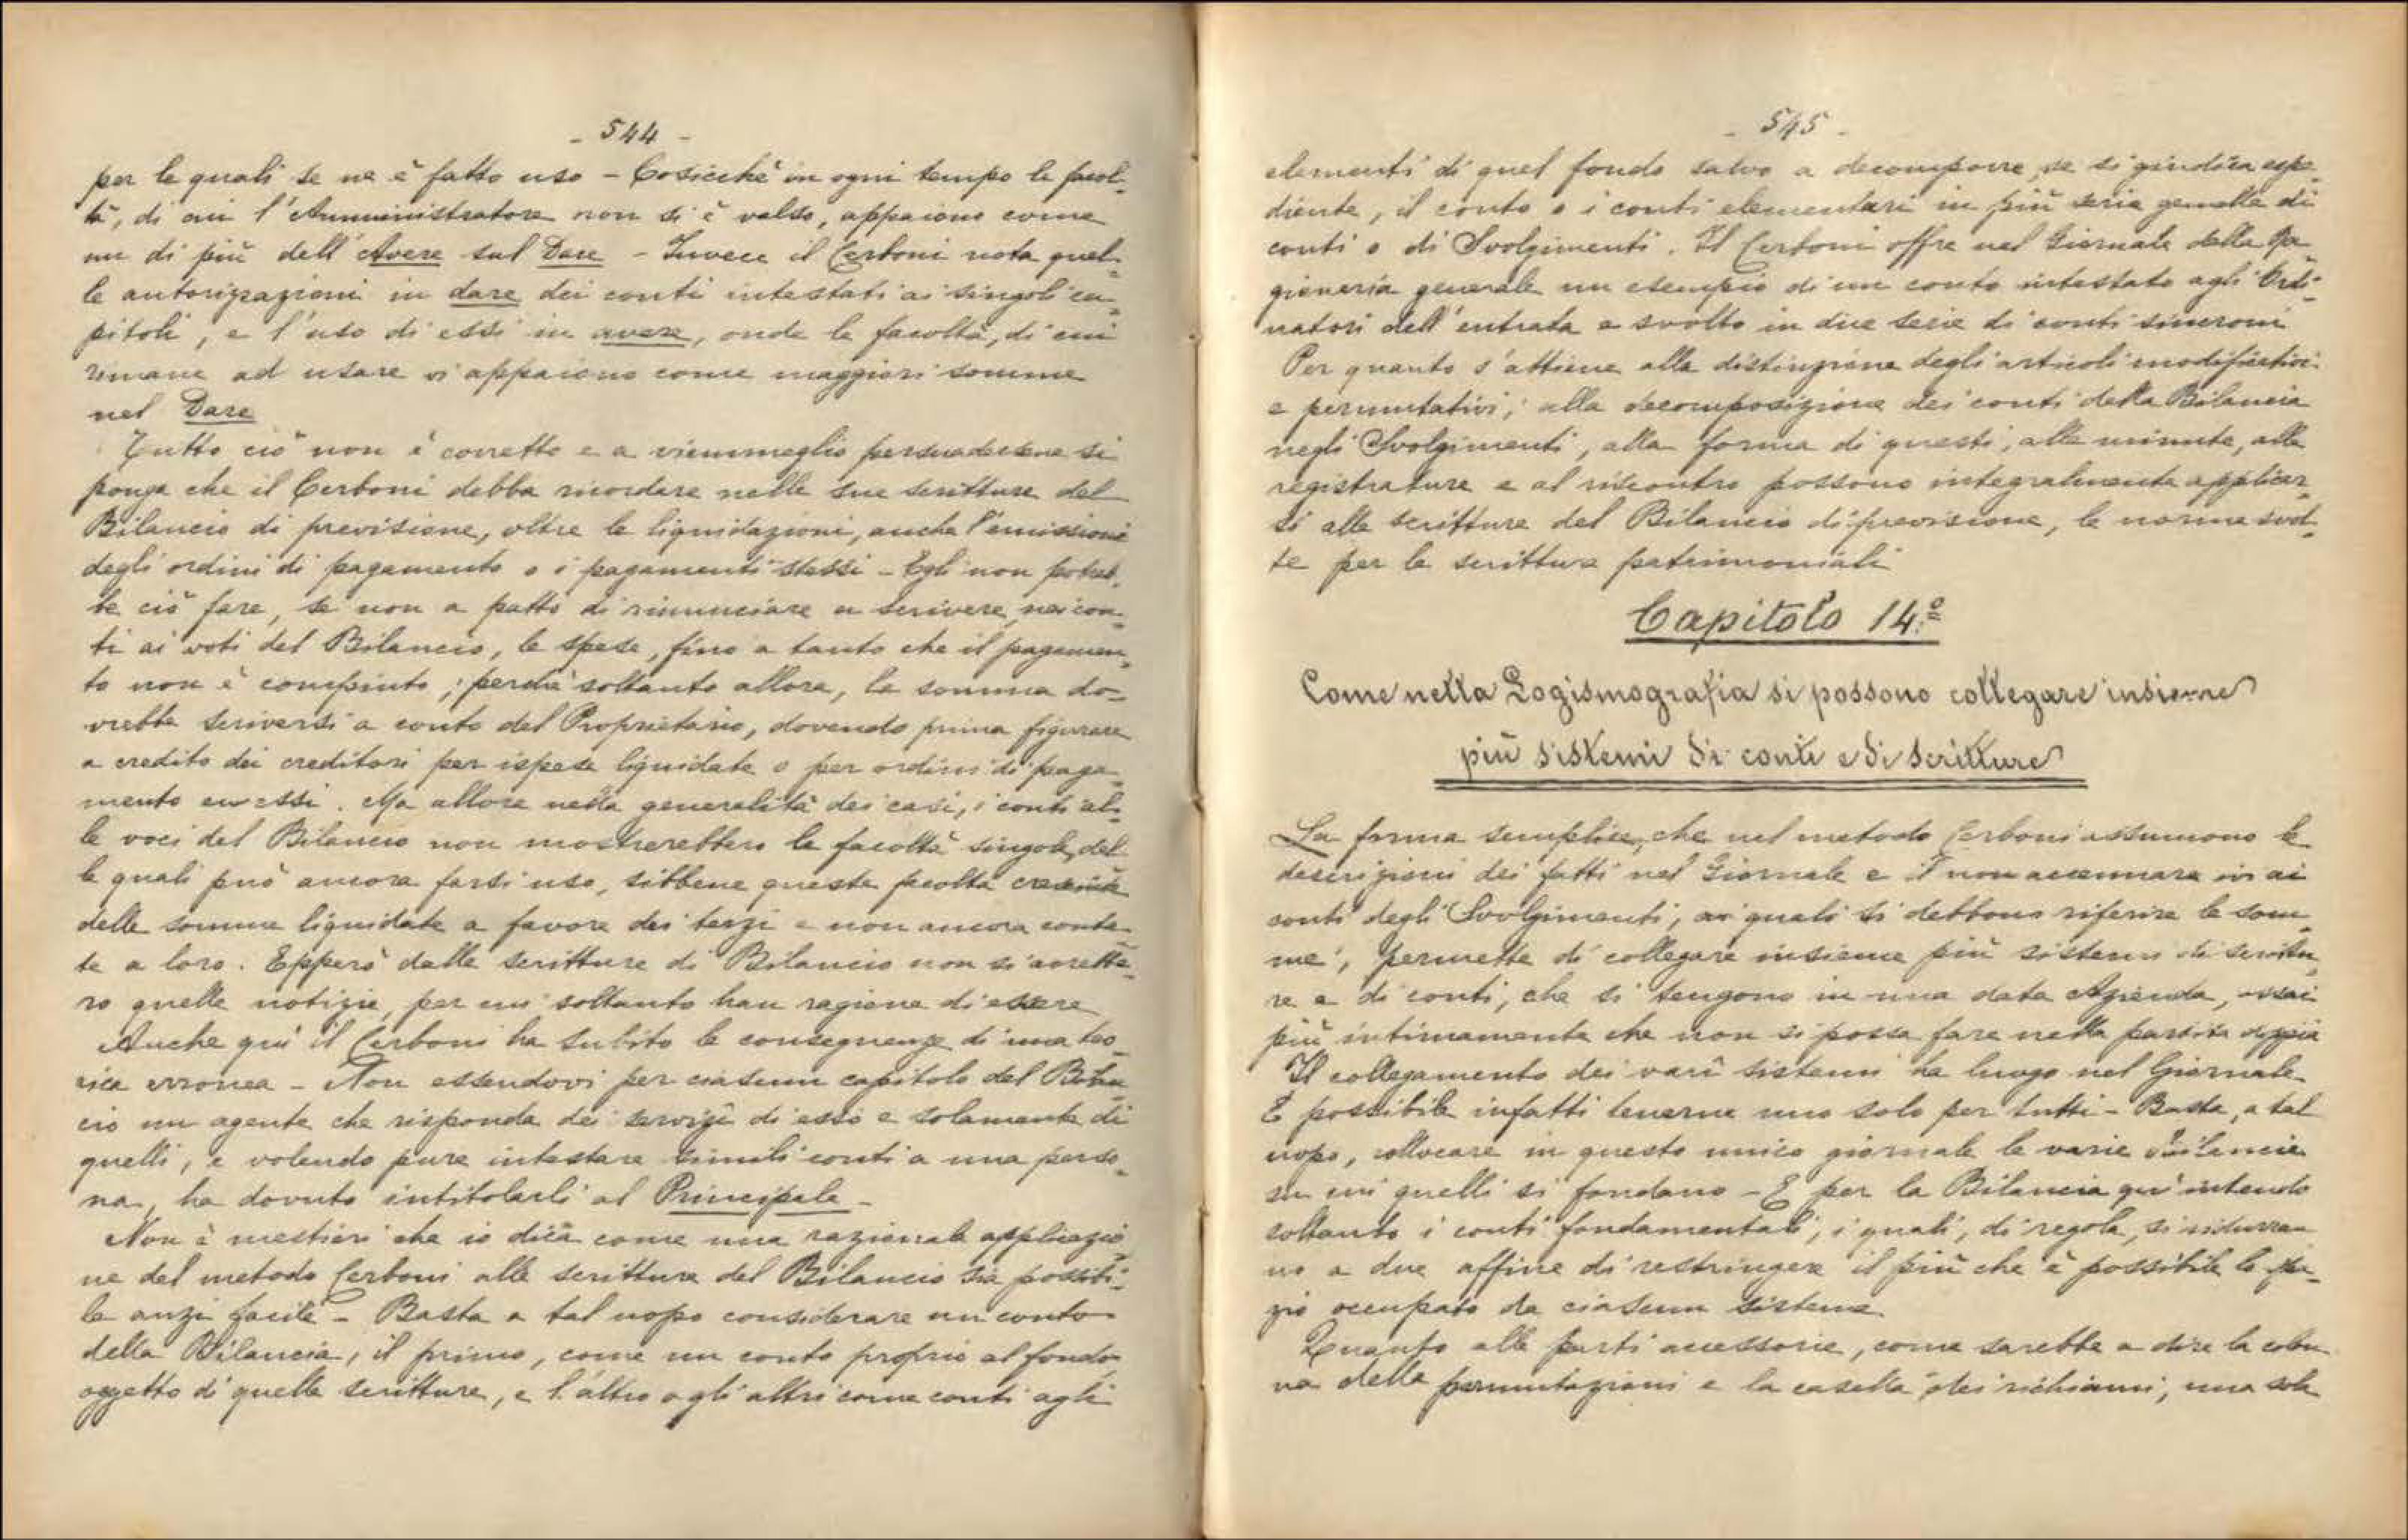 - 544 -
per le quali se ne è fatto uso - Cosicchè in ogni tempo le facol-
tà, di cui l'Amministratore non si è valso, appaiono come
un di più dell'Avere sul Dare - Invece il Cerboni nota quel-
le autorizzazioni in dare dei conti intestati ai singoli ca-
pitoli, e l'uso di essi in avere, onde le facoltà, di cui
rimane ad usare vi appaiono come maggiori somme
nel Dare
Tutto ciò non è corretto e a viemmeglio persuadersene si
ponga che il Cerboni debba ricordare nelle sue scritture del
Bilancio di previsione, oltre le liquidazioni, anche l'emissione
degli ordini di pagamento o i pagamenti stessi - Egli non potreb-
be ciò fare, se non a patto di rinunciare a scrivere, nei con-
ti ai voti del Bilancio, le spese, fino a tanto che il pagamen-
to non è compiuto; perchè soltanto allora, la somma do-
vrebbe scriversi a conto del Proprietario, dovendo prima figurare
a credito dei creditori per ispese liquidate o per ordini di paga-
mento emessi. Ma allora nella generalità dei casi, i conti al-
le voci del Bilancio non mostrerebbero le facoltà singole, del-
le quali può ancora farsi uso, sibbene queste facoltà cresciute
delle somme liquidate a favore dei terzi e non ancora conta-
te a loro. Epperò dalle scritture di Bilancio non si avrebbe-
ro quelle notizie, per cui soltanto han ragione di essere
Anche qui il Cerboni ha subito le conseguenze di una teo-
rica erronea - Non essendovi per ciascun capitolo del Bilan-
cio un agente che risponda dei servizî di esso e solamente di
quelli, e volendo pure intestare simili conti a una perso-
na, ha dovuto intitolarli al Principale -
Non è mestieri che io dica come una razionale applicazio-
ne del metodo Cerboni alle scritture del Bilancio sia possibi-
le anzi facile - Basta a tal uopo considerare un conto
della Bilancia, il primo, come un conto proprio al fondo
oggetto di quelle scritture, e l'altro o gli altri come conti agli
- 545 -
elementi di quel fondo salvo a decomporre, se si giudica espe-
diente, il conto o i conti elementari in più serie gemelle di
conti o di Svolgimenti. Il Cerboni offre nel Giornale della Ra-
gioneria generale un esempio di un conto intestato agli Ordi-
natori dell'entrata e svolto in due serie di conti sincroni
Per quanto s'attiene alla distinzione degli articoli modificativi
e permutativi, alla decomposizione dei conti della Bilancia
negli Svolgimenti, alla forma di questi, alle minute, alle
registrature e al riscontro possono integralmente applicar-
si alle scritture del Bilancio di previsione, le norme svol-
te per le scritture patrimoniali
Capitolo 14.º
Come nella Logismografia si possono collegare insieme
più sistemi di conti e di scritture
La forma semplice, che nel metodo Cerboni assumono le
descrizioni dei fatti nel Giornale e il non accennare ivi ai
conti degli Svolgimenti, ai quali si debbono riferire le som-
me, permette di collegare insieme più sistemi di scrittu-
re e di conti, che si tengono in una data Azienda, assai
più intimamente che non si possa fare nella partita doppia
Il collegamento dei varî sistemi ha luogo nel Giornale
È possibile infatti tenerne uno solo per tutti - Basta, a tal
uopo, collocare in questo unico giornale le varie Bilancie
su cui quelli si fondano - E per la Bilancia qui intendo
soltanto i conti fondamentali, i quali, di regola, si ridurran-
no a due affine di restringere il più che è possibile lo spa-
zio occupato da ciascun sistema
Quanto alle parti accessorie, come sarebbe a dire la colon-
na delle permutazioni e la casella dei richiami, una sola